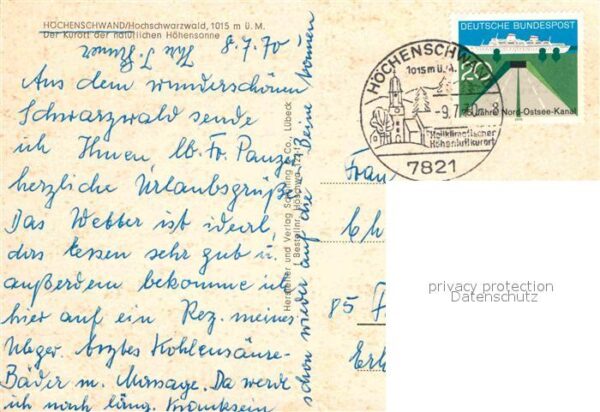 HÖCHENSCHWAND/Hochschwarzwald, 1015 m ü. M.
Der Kurort der natürlichen Höhensonne
8.7.70
Aus dem wunderschönen
Schwarzwald sende
ich Ihnen, lb. Fr. Panzer
herzliche Urlaubsgrüße
Das Wetter ist ideal,
das Essen sehr gut u.
außerdem bekomme ich
hier auf ein Rez. meines
Nbger Arztes Kohlensäure-
Bäder m. Massage. Da werde
ich nach läng. Kranksein
schon wieder auf die Beine kommen
Ihre
Hersteller und Verlag Schöning & Co., Lübeck
Bestellnr.
DEUTSCHE BUNDESPOST
20
75 Jahre Nord-Ostsee-Kanal
HÖCHENSCHWAND
1015 m ü. M.
-9.7.70-8
Heilklimatischer
Höhenluftkurort
7821
Frau
85
privacy protection
Datenschutz